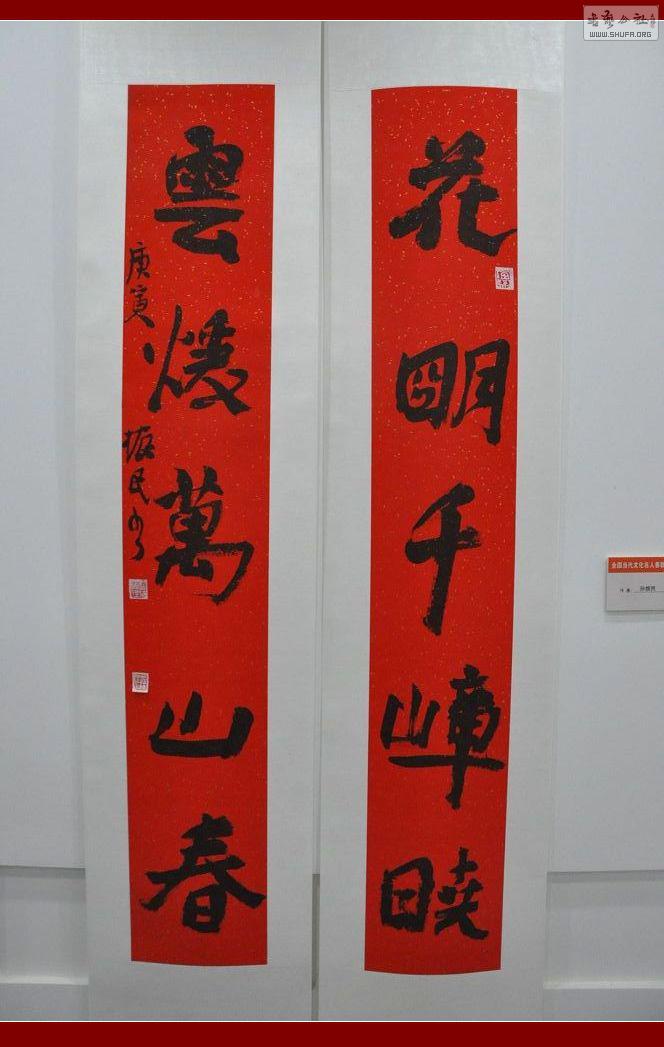 書藝公社
WWW.SHUFA.ORG
花明千嶂曉
雲煖萬山春
庚寅 振民书
全国当代文化名人书